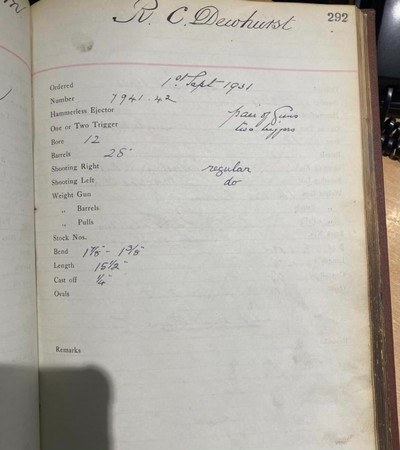 R. C. Dewhurst 292
Ordered 1st Sept 1931
Number 7941.42
Hammerless Ejector pair of Guns
One or Two Trigger two triggers
Bore 12
Barrels 28"
Shooting Right regular
Shooting Left do
Weight Gun
„ Barrels
„ Pulls
Stock Nos.
Bend
Length 15 1/2"
Cast off 1/4"
Ovals
Remarks